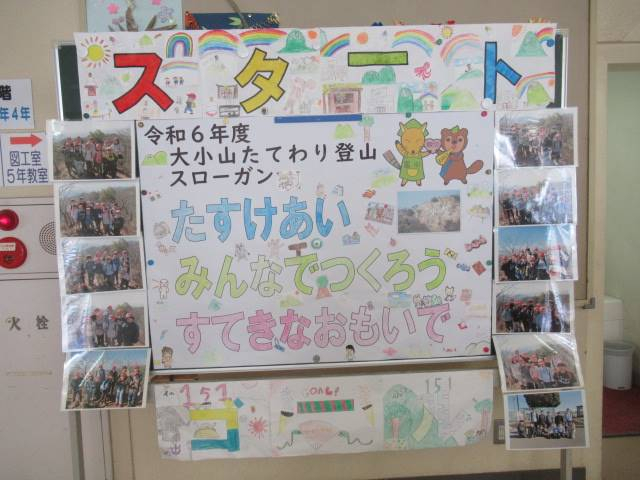 スタート
令和６年度
大小山たてわり登山
スローガン
たすけあい
みんなでつくろう
すてきなおもいで
階
年4年
図工室
5年教室
火栓
151
151